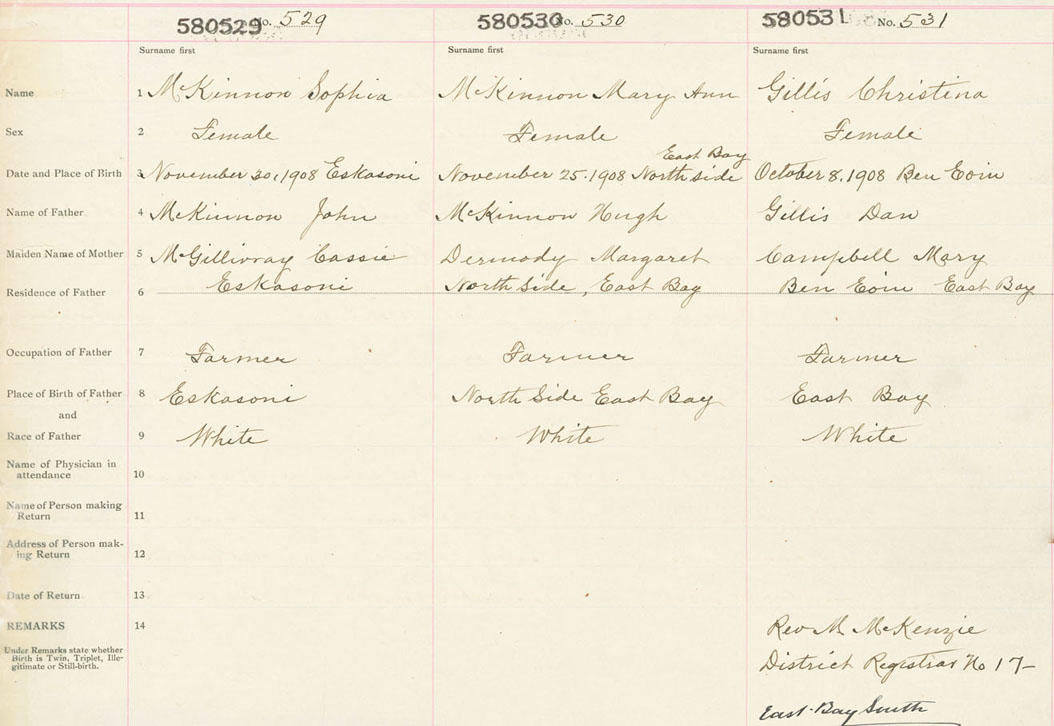 580529 No. 529 580530 No. 530 580531 No. 531
Surname first Surname first Surname first
Name 1 McKinnon Sophia McKinnon Mary Ann Gillis Christina
Sex 2 Female Female Female
East Bay
Date and Place of Birth 3 November 30, 1908 Eskasoni November 25. 1908 North side October 8. 1908 Ben Eoin
Name of Father 4 McKinnon John McKinnon Hugh Gillis Dan
Maiden Name of Mother 5 McGillivray Cassie Dermody Margaret Campbell Mary
Residence of Father 6 Eskasoni North Side, East Bay Ben Eoin East Bay
Occupation of Father 7 Farmer Farmer Farmer
Place of Birth of Father 8 Eskasoni North Side East Bay East Bay
and
Race of Father 9 White White White
Name of Physician in
attendance 10
Name of Person making
Return 11
Address of Person mak-
ing Return 12
Date of Return 13
REMARKS 14 Rev M. McKenzie
Under Remarks state whether
Birth is Twin, Triplet, Ille-
gitimate or Still-birth.
District Registrar No 17-
East Bay South